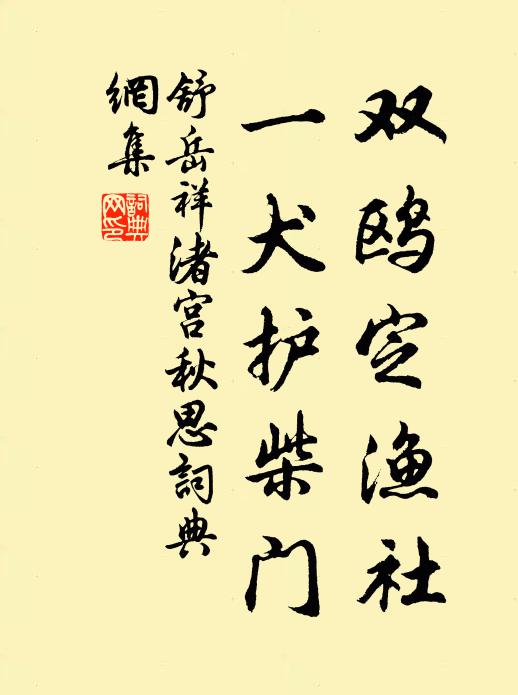 双鸥定渔社
一犬护柴门
舒岳祥渚宫秋思詞典
網集
詞典
网印